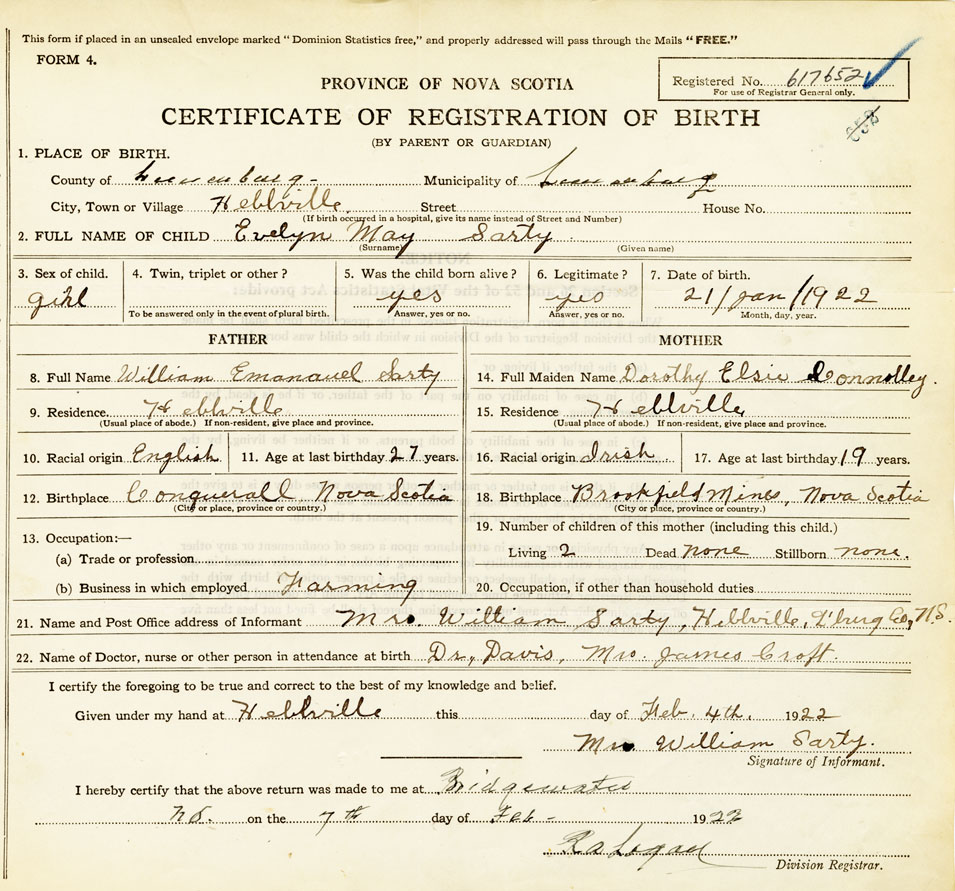 This form if placed in an unsealed envelope marked "Dominion Statistics free," and properly addressed will pass through the Mails "FREE."
FORM 4.
Registered No. 617652
For use of Registrar General only.
PROVINCE OF NOVA SCOTIA
CERTIFICATE OF REGISTRATION OF BIRTH
(BY PARENT OR GUARDIAN)
1. PLACE OF BIRTH.
County of Lunenburg - Municipality of Lunenburg
City, Town or Village Hebbville Street House No.
(If birth occurred in a hospital, give its name instead of Street and Number)
2. FULL NAME OF CHILD Evelyn May Sarty
(Surname) (Given name)
3. Sex of child. 4. Twin, triplet or other? 5. Was the child born alive? 6. Legitimate? 7. Date of birth.
girl yes yes 21/Jan/1922
To be answered only in the event of plural birth. Answer, yes or no. Answer, yes or no. Month, day, year.
FATHER MOTHER
8. Full Name William Emanauel Sarty 14. Full Maiden Name Dorothy Elsie Connolley.
9. Residence. Hebbville 15. Residence Hebbville
(Usual place of abode.) If non-resident, give place and province. (Usual place of abode.) If non-resident, give place and province.
10. Racial origin English 11. Age at last birthday 27 years. 16. Racial origin Irish 17. Age at last birthday 19 years.
12. Birthplace Conquerall Nova Scotia 18. Birthplace Brookfield Mines, Nova Scotia
(City or place, province or country.) (City or place, province or country.)
13. Occupation:— 19. Number of children of this mother (including this child.)
(a) Trade or profession Living 2 Dead none Stillborn none.
(b) Business in which employed Farming 20. Occupation, if other than household duties
21. Name and Post Office address of Informant Mrs. William Sarty, Hebbville, L'burg Co, N.S.
22. Name of Doctor, nurse or other person in attendance at birth Dr, Davis, Mrs. James Croft.
I certify the foregoing to be true and correct to the best of my knowledge and belief.
Given under my hand at Hebbville this day of Feb. 4th. 1922
Mrs William Sarty.
Signature of Informant.
I hereby certify that the above return was made to me at Bridgewater
NS. on the 7th day of Feb - 1922
Division Registrar.